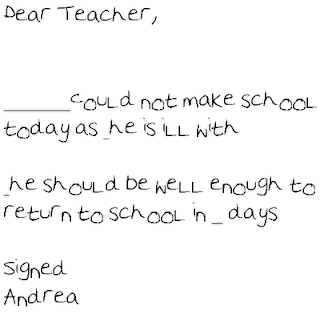 Dear Teacher,
_______could not make school
today as _he is ill with
_he should be well enough to
return to school in _ days
signed
Andrea